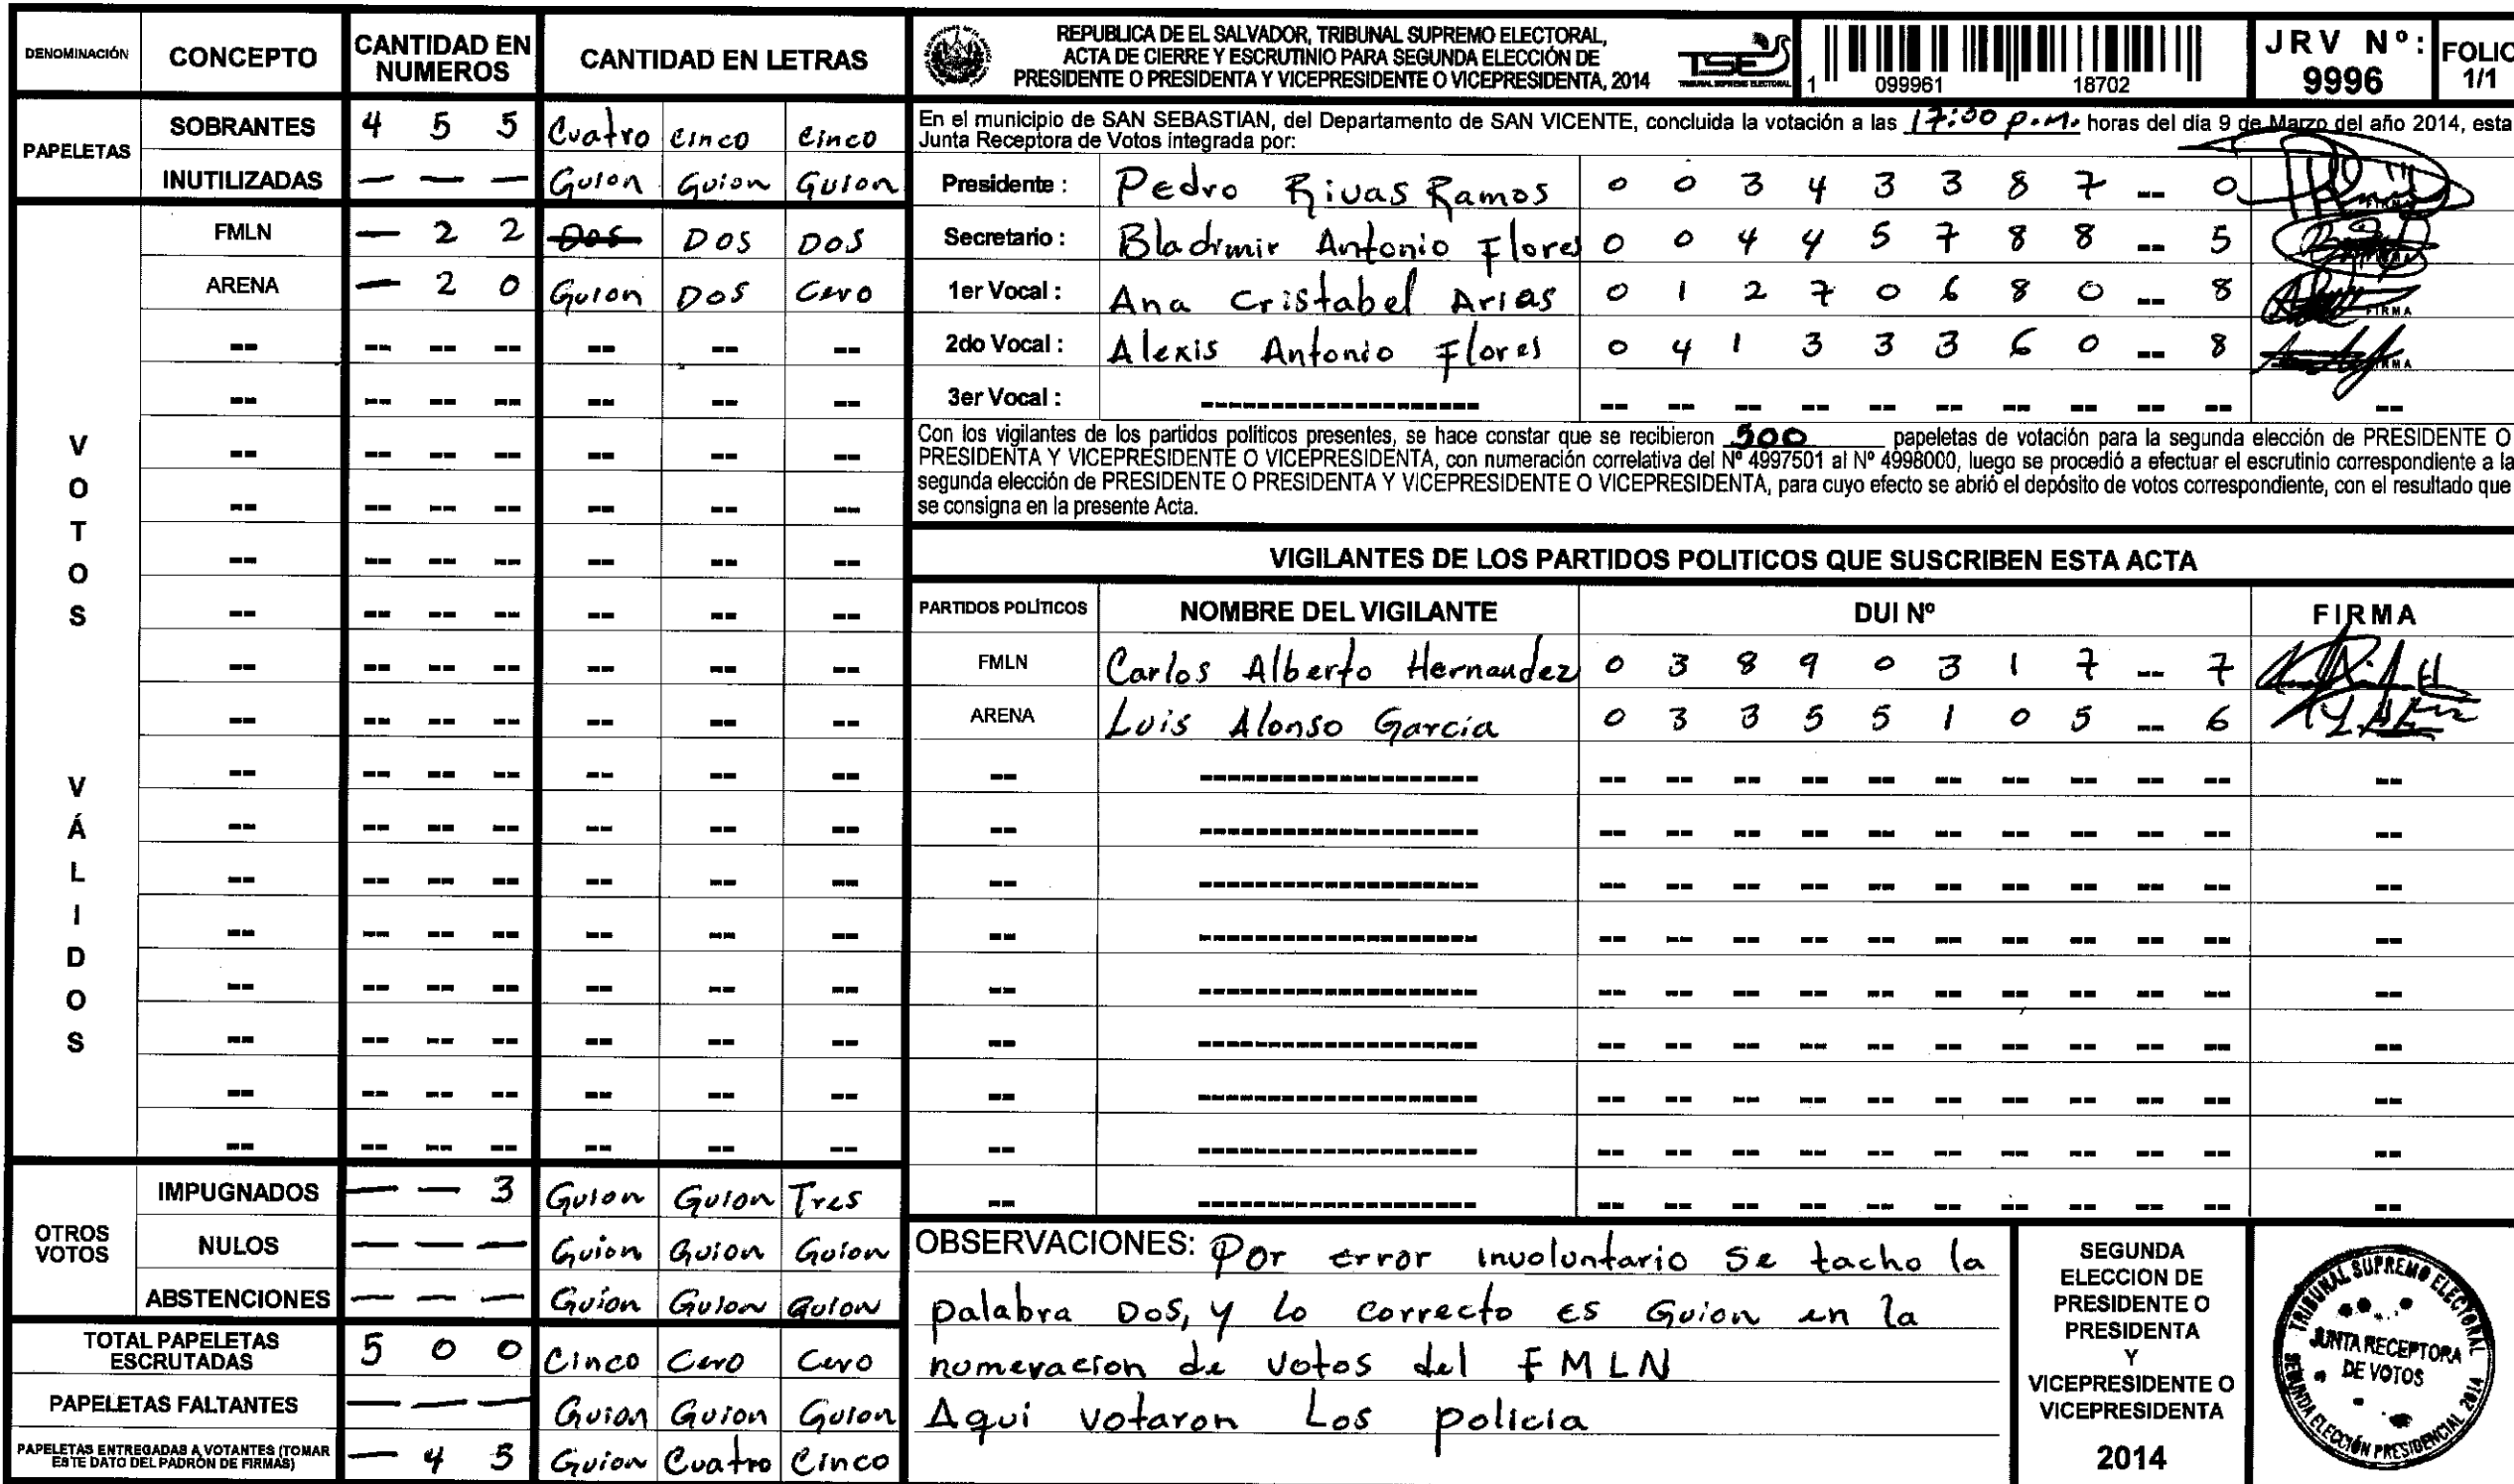 DENOMINACIÓN CONCEPTO CANTIDAD EN NUMEROS CANTIDAD EN LETRAS
PAPELETAS
SOBRANTES 4 5 5 Cuatro Cinco Cinco
INUTILIZADAS — — — Guion Guion Guion
VOTOS VÁLIDOS
FMLN — 2 2 Dos Dos Dos
ARENA — 2 0 Guion Dos Cero
OTROS VOTOS
IMPUGNADOS — — 3 Guion Guion Tres
NULOS — — — Guion Guion Guion
ABSTENCIONES — — — Guion Guion Guion
TOTAL PAPELETAS ESCRUTADAS 5 0 0 Cinco Cero Cero
PAPELETAS FALTANTES — — — Guion Guion Guion
PAPELETAS ENTREGADAS A VOTANTES (TOMAR ESTE DATO DEL PADRÓN DE FIRMAS) — 4 5 Guion Cuatro Cinco
REPUBLICA DE EL SALVADOR, TRIBUNAL SUPREMO ELECTORAL,
ACTA DE CIERRE Y ESCRUTINIO PARA SEGUNDA ELECCIÓN DE
PRESIDENTE O PRESIDENTA Y VICEPRESIDENTE O VICEPRESIDENTA, 2014
TSE
TRIBUNAL SUPREMO ELECTORAL
1 099961 18702
JRV Nº: 9996
FOLIO 1/1
En el municipio de SAN SEBASTIAN, del Departamento de SAN VICENTE, concluida la votación a las 17:00 p.m. horas del día 9 de Marzo del año 2014, esta
Junta Receptora de Votos integrada por:
Presidente : Pedro Rivas Ramos 0 0 3 4 3 3 8 7 -- 0
Secretario : Bladimir Antonio Flores 0 0 4 4 5 7 8 8 -- 5
1er Vocal : Ana Cristabel Arias 0 1 2 7 0 6 8 0 -- 8 FIRMA
2do Vocal : Alexis Antonio Flores 0 4 1 3 3 3 6 0 -- 8
3er Vocal : -- -- -- -- -- -- -- -- -- -- --
Con los vigilantes de los partidos políticos presentes, se hace constar que se recibieron 500 papeletas de votación para la segunda elección de PRESIDENTE O
PRESIDENTA Y VICEPRESIDENTE O VICEPRESIDENTA, con numeración correlativa del Nº 4997501 al Nº 4998000, luego se procedió a efectuar el escrutinio correspondiente a la
segunda elección de PRESIDENTE O PRESIDENTA Y VICEPRESIDENTE O VICEPRESIDENTA, para cuyo efecto se abrió el depósito de votos correspondiente, con el resultado que
se consigna en la presente Acta.
VIGILANTES DE LOS PARTIDOS POLITICOS QUE SUSCRIBEN ESTA ACTA
PARTIDOS POLÍTICOS NOMBRE DEL VIGILANTE DUI Nº FIRMA
FMLN Carlos Alberto Hernandez 0 3 8 9 0 3 1 7 -- 7
ARENA Luis Alonso García 0 3 3 5 5 1 0 5 -- 6
OBSERVACIONES: Por error involuntario se tacho la
palabra Dos, y lo correcto es Guion en la
numeracion de votos del FMLN
Aqui votaron Los policia
SEGUNDA
ELECCION DE
PRESIDENTE O
PRESIDENTA
Y
VICEPRESIDENTE O
VICEPRESIDENTA
2014
TRIBUNAL SUPREMO ELECTORAL
JUNTA RECEPTORA
DE VOTOS
SEGUNDA ELECCIÓN PRESIDENCIAL 2014